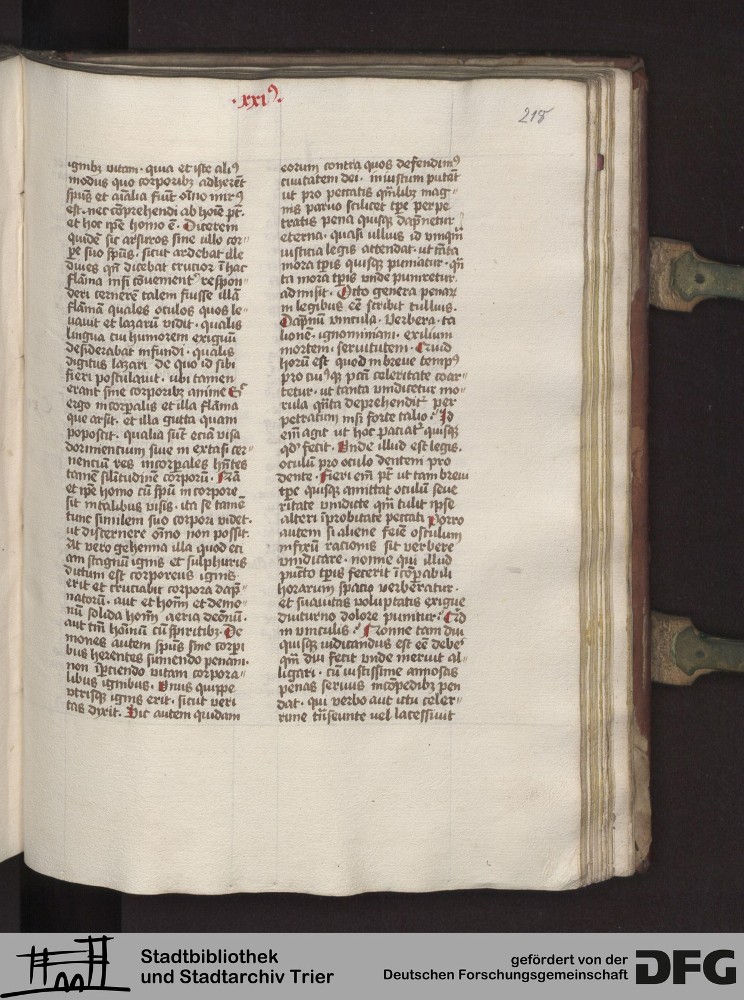 ·xxi⁹·
215
ignibꝫ vitam· quia et iste ali⁹
modus quo corporibꝫ adherēt
spūs et aīalia fiūt oīno mir⁹
est· nec cōprehendi ab hoīe pt̄·
et hoc ip̄e homo ē· Dicerem
quidē sic arsuros sine illo cor
pe suo spūs· sicut ardebat ille
diues qn̄ dicebat crucior ī hac
flāma nisi ꝯuenienter respon
deri cernerē talem fuisse illā
flāmā quales oculos quos le
uauit et lazarū vidit· qualis
lingua cui humorem exiguū
desiderabat infundi· qualis
digitus lazari de quo id sibi
fieri postulauit· vbi tamen
erant sine corporibꝫ anime Sic
ergo incorp̄alis et illa flāma
que arsit· et illa gutta quam
poposcit· qualia sūt eciā visa
dormientium siue in extasi cer
nenciū res incorp̄ales hn̄tes
tamē silitudinē corporū· Nā
et ip̄e homo cū spū nō corpore
sit in talibus visis· ita se tamē
tunc similem suo corpori videt·
ut discernere oīno non possit·
At vero gehenna illa quod eci
am stagnū ignis et sulphuris
dictum est corporeus ignis
erit et cruciabit corpora dāp
natorū· aut et hom̄ et demo
nū solida hom̄ aeria demū·
aut tm̄ hoīnū cū spiritibꝫ· De
mones autem spūs sine corpī
bus herentes sumendo penam·
non īptiendo vitam corpora
libus ignibus· Vnus quippe
vtrisqꝫ ignis erit· sicut veri
tas dixit· Sic autem quidam
eorum contra quos defendim⁹
ciuitatem dei· iniustum putāt
ut pro peccatis qm̄libꝫ mag
nis paruo scilicet tpe perpe
tratis pena quisqꝫ dāpnetur
eterna· quasi ullius id vmqm̄
iusticia legis attendat· ut tāta
mora tp̄is quisqꝫ puniatur· qn̄
ta mora tp̄is vnde puniretur·
admisit· Octo genera penarꝫ
in legibus eē scribit tullius·
Dāpnū vincula· verbera· ta
lionē· ignominiam· exilium
mortem· seruitutem· Quid
horū est quod in breue temp⁹
pro cui⁹qꝫ pctī celeritate coar
tetur· ut tanta vindicetur mo
rula qn̄ta deprehendit per
petratum nisi forte talio· Id
em̄ agit ut hoc paciat quisqꝫ
qd̓ fecit· Vnde illud est legis·
oculū pro oculo dentem pro
dente· Fieri em̄ pt̄ ut tam breui
tp̄e quisqꝫ amittat oculū seue
ritate vindicte qm̄ tulit ip̄se
alteri īprobitate peccati Porro
autem si aliene feīe osculum
infixū racionis sit verbere
vindicare· nonne qui illud
pūcto tp̄is fecerit īcōpabili
horarum spacio verberatur·
et suauitas voluptatis exigue
diuturno dolore punitur· Quid
in vinculis· Nonne tam diu
quisqꝫ iudicandus est eē debe̓
qm̄ diu fecit vnde meruit al
ligari· cū iustissime annosas
penas seruus incōpedibꝫ pen
dat· qui verbo aut ictu celer
rime tn̄seunte vel lacessiuit
Stadtbibliothek
und Stadtarchiv Trier
gefördert von der
Deutschen Forschungsgemeinschaft
DFG